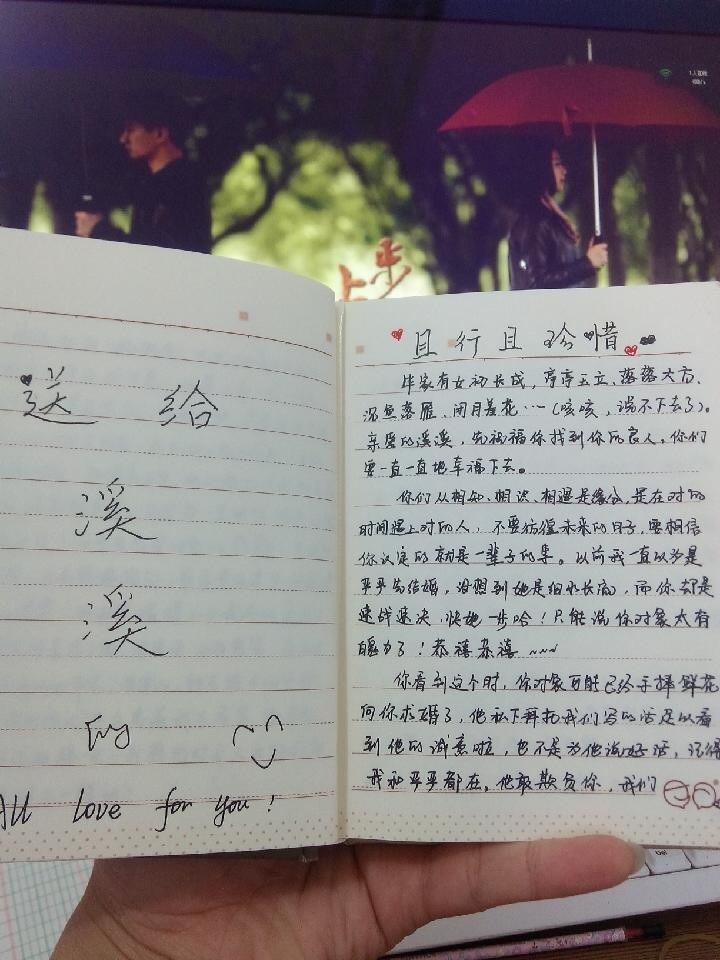 步
送 给
溪
溪
All love for you!
且行且珍惜
毕家有女初长成,亭亭玉立、落落大方、
沉鱼落雁、闭月羞花…(咳咳,说不下去了)。
亲爱的溪溪,先祝福你找到你的良人,你们
要一直一直地幸福下去。
你们从相知、相识、相遇是缘分,是在对的
时间遇上对的人,不要彷徨未来的日子,要相信
你认定的就是一辈子的事。以前我一直以为是
平平先结婚,没想到她是细水长流,而你却是
速战速决,快她一步哈!只能说你对象太有
魄力了!恭禧恭禧~~~
你看到这个时,你对象可能已经手捧鲜花
向你求婚了,他私下拜托我们写的话足以看
到他的诚意啦,也不是为他说好话,记得
我和平平都在,他敢欺负你,我们